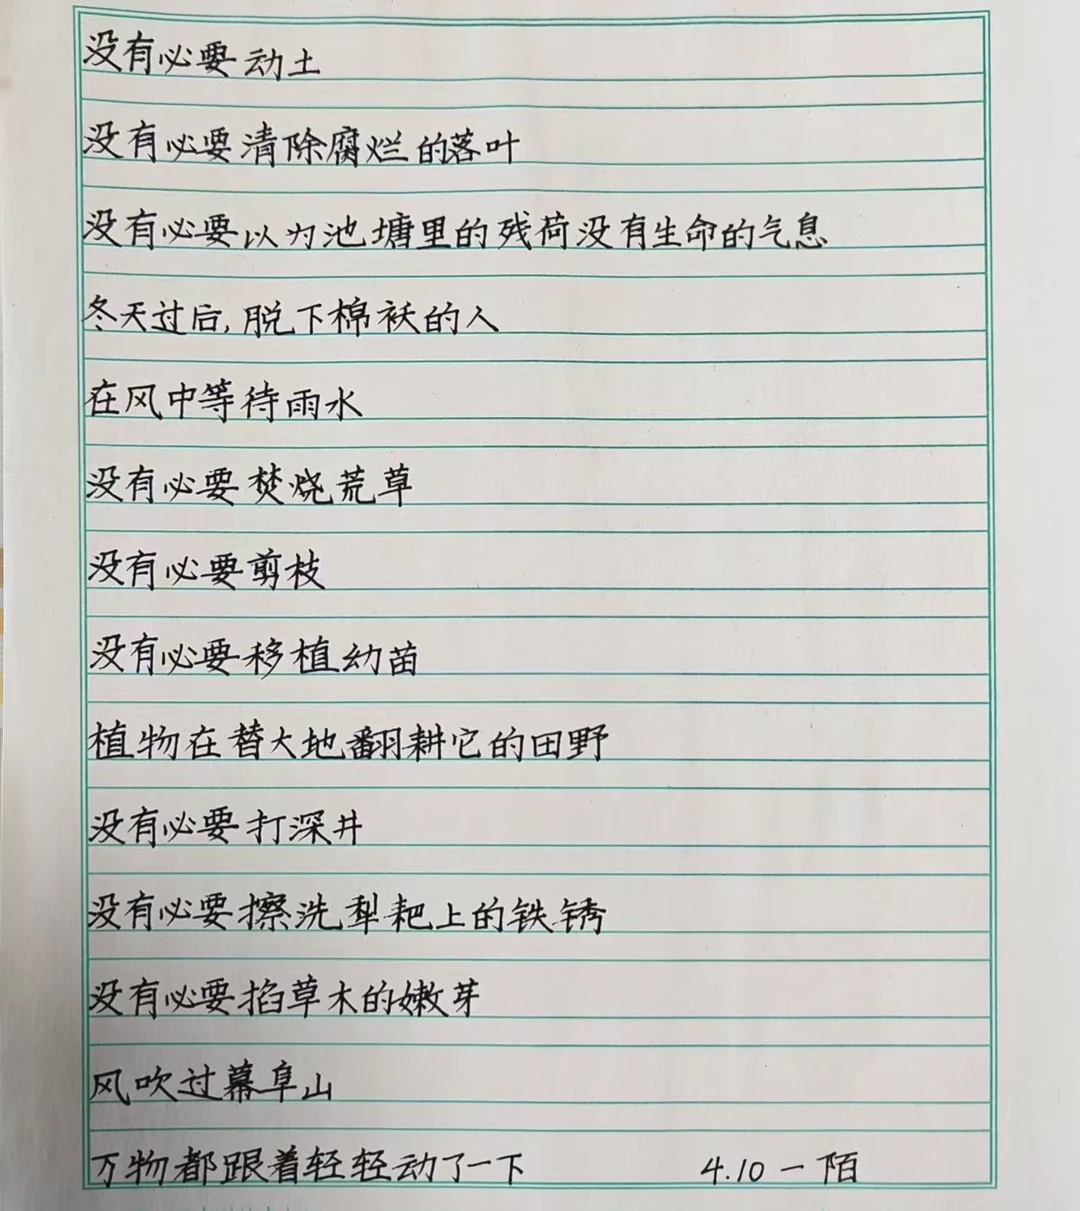 没有必要动土
没有必要清除腐烂的落叶
没有必要以为池塘里的残荷没有生命的气息
冬天过后,脱下棉袄的人
在风中等待雨水
没有必要焚烧荒草
没有必要剪枝
没有必要移植幼苗
植物在替大地翻耕它的田野
没有必要打深井
没有必要擦洗犁耙上的铁锈
没有必要掐草木的嫩芽
风吹过幕阜山
万物都跟着轻轻动了一下 4.10 一陌